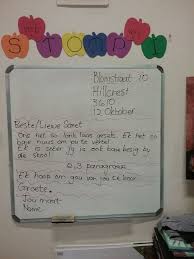 STOMPI
Blomstraat 10
Hillcrest
3610
12 Oktober
Beste/Liewe Janet
Ons het so lank laas gesels. Ek het so
baie nuus om vir te vertel.
Ek is seker jy is ook baie besig by
die skool
2,3 paragrawe
Ek hoop om gou van jou te hoor.
Groete.
Jou maat
Naam